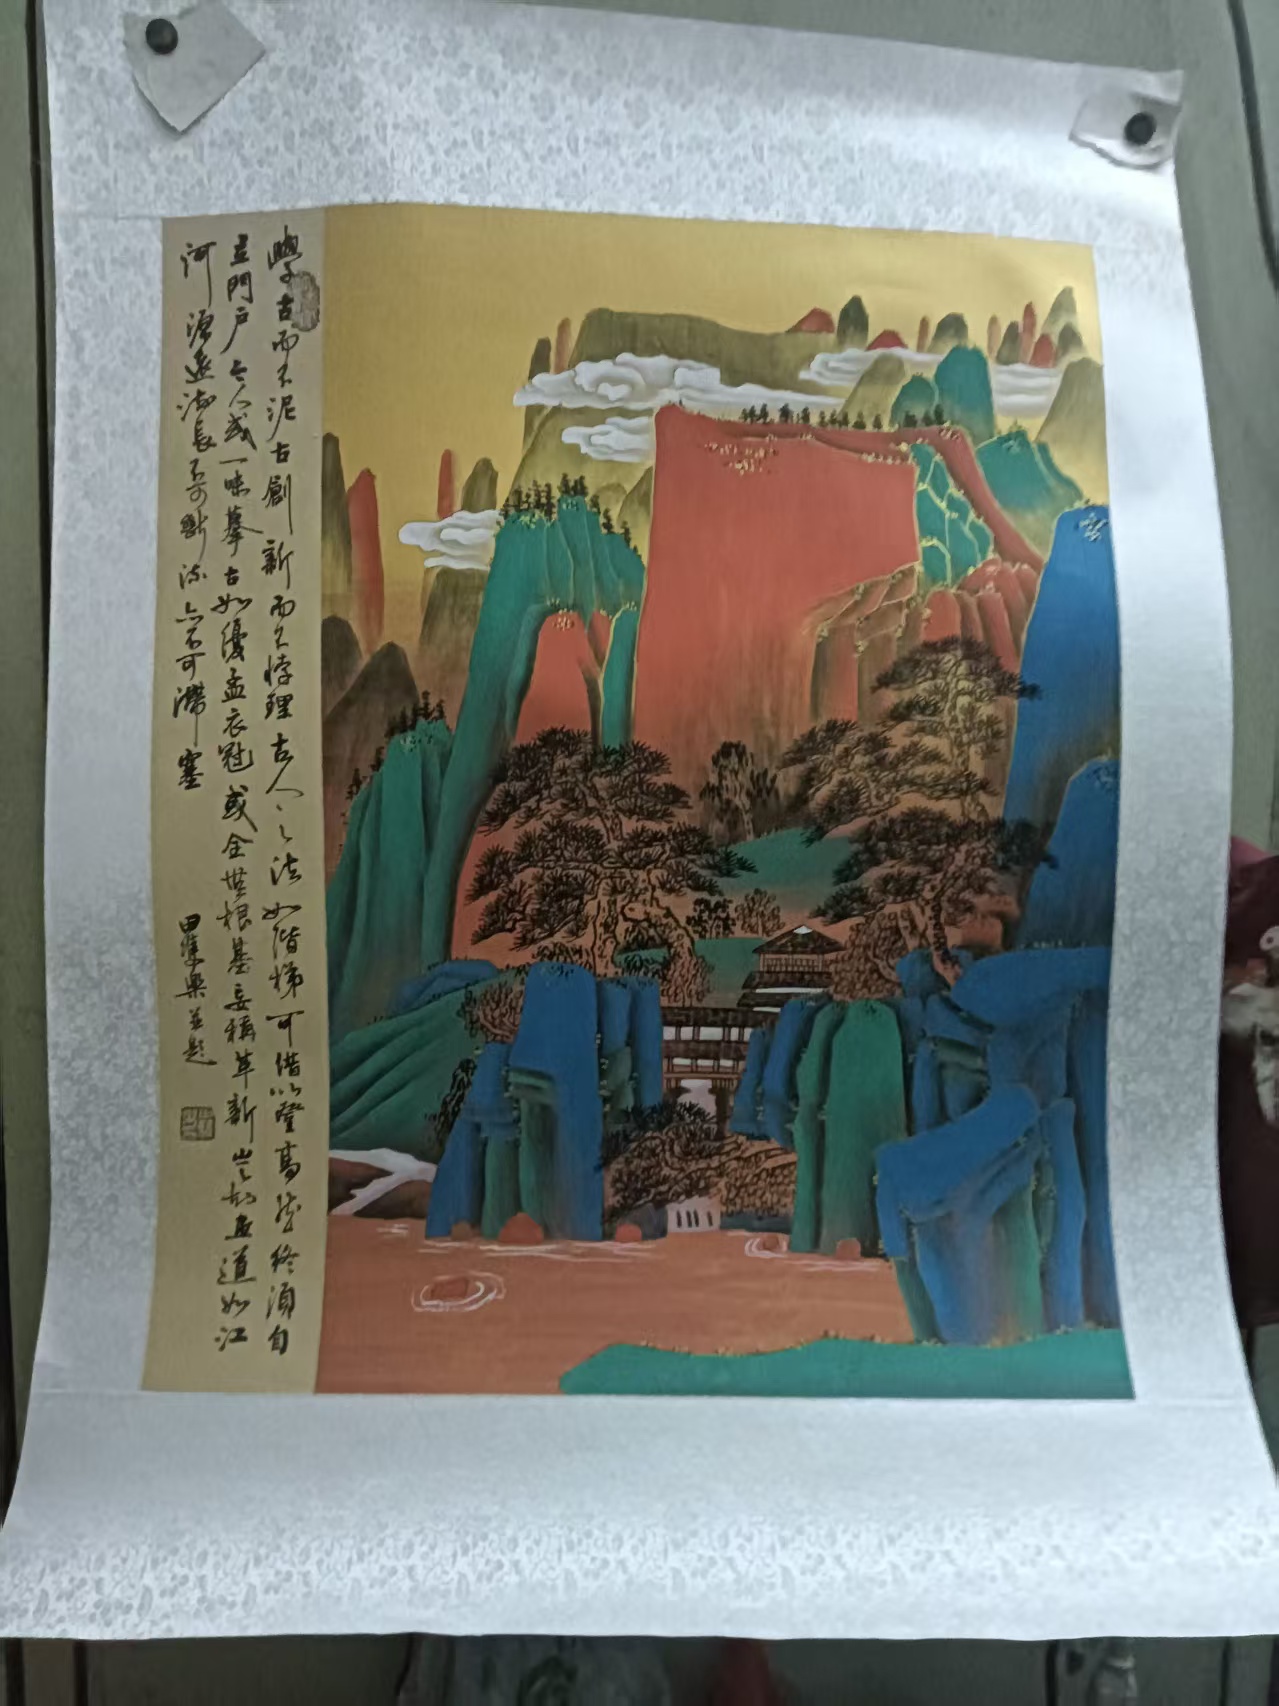 學古而不泥古創新而不悖理古人之法如階梯可借以登高然終須自
立門户今人或一味摹古如優孟衣冠或全無根基妄稱革新豈知畫道如江
河源遠流長不可斷流亦不可滯塞
田集樂並題